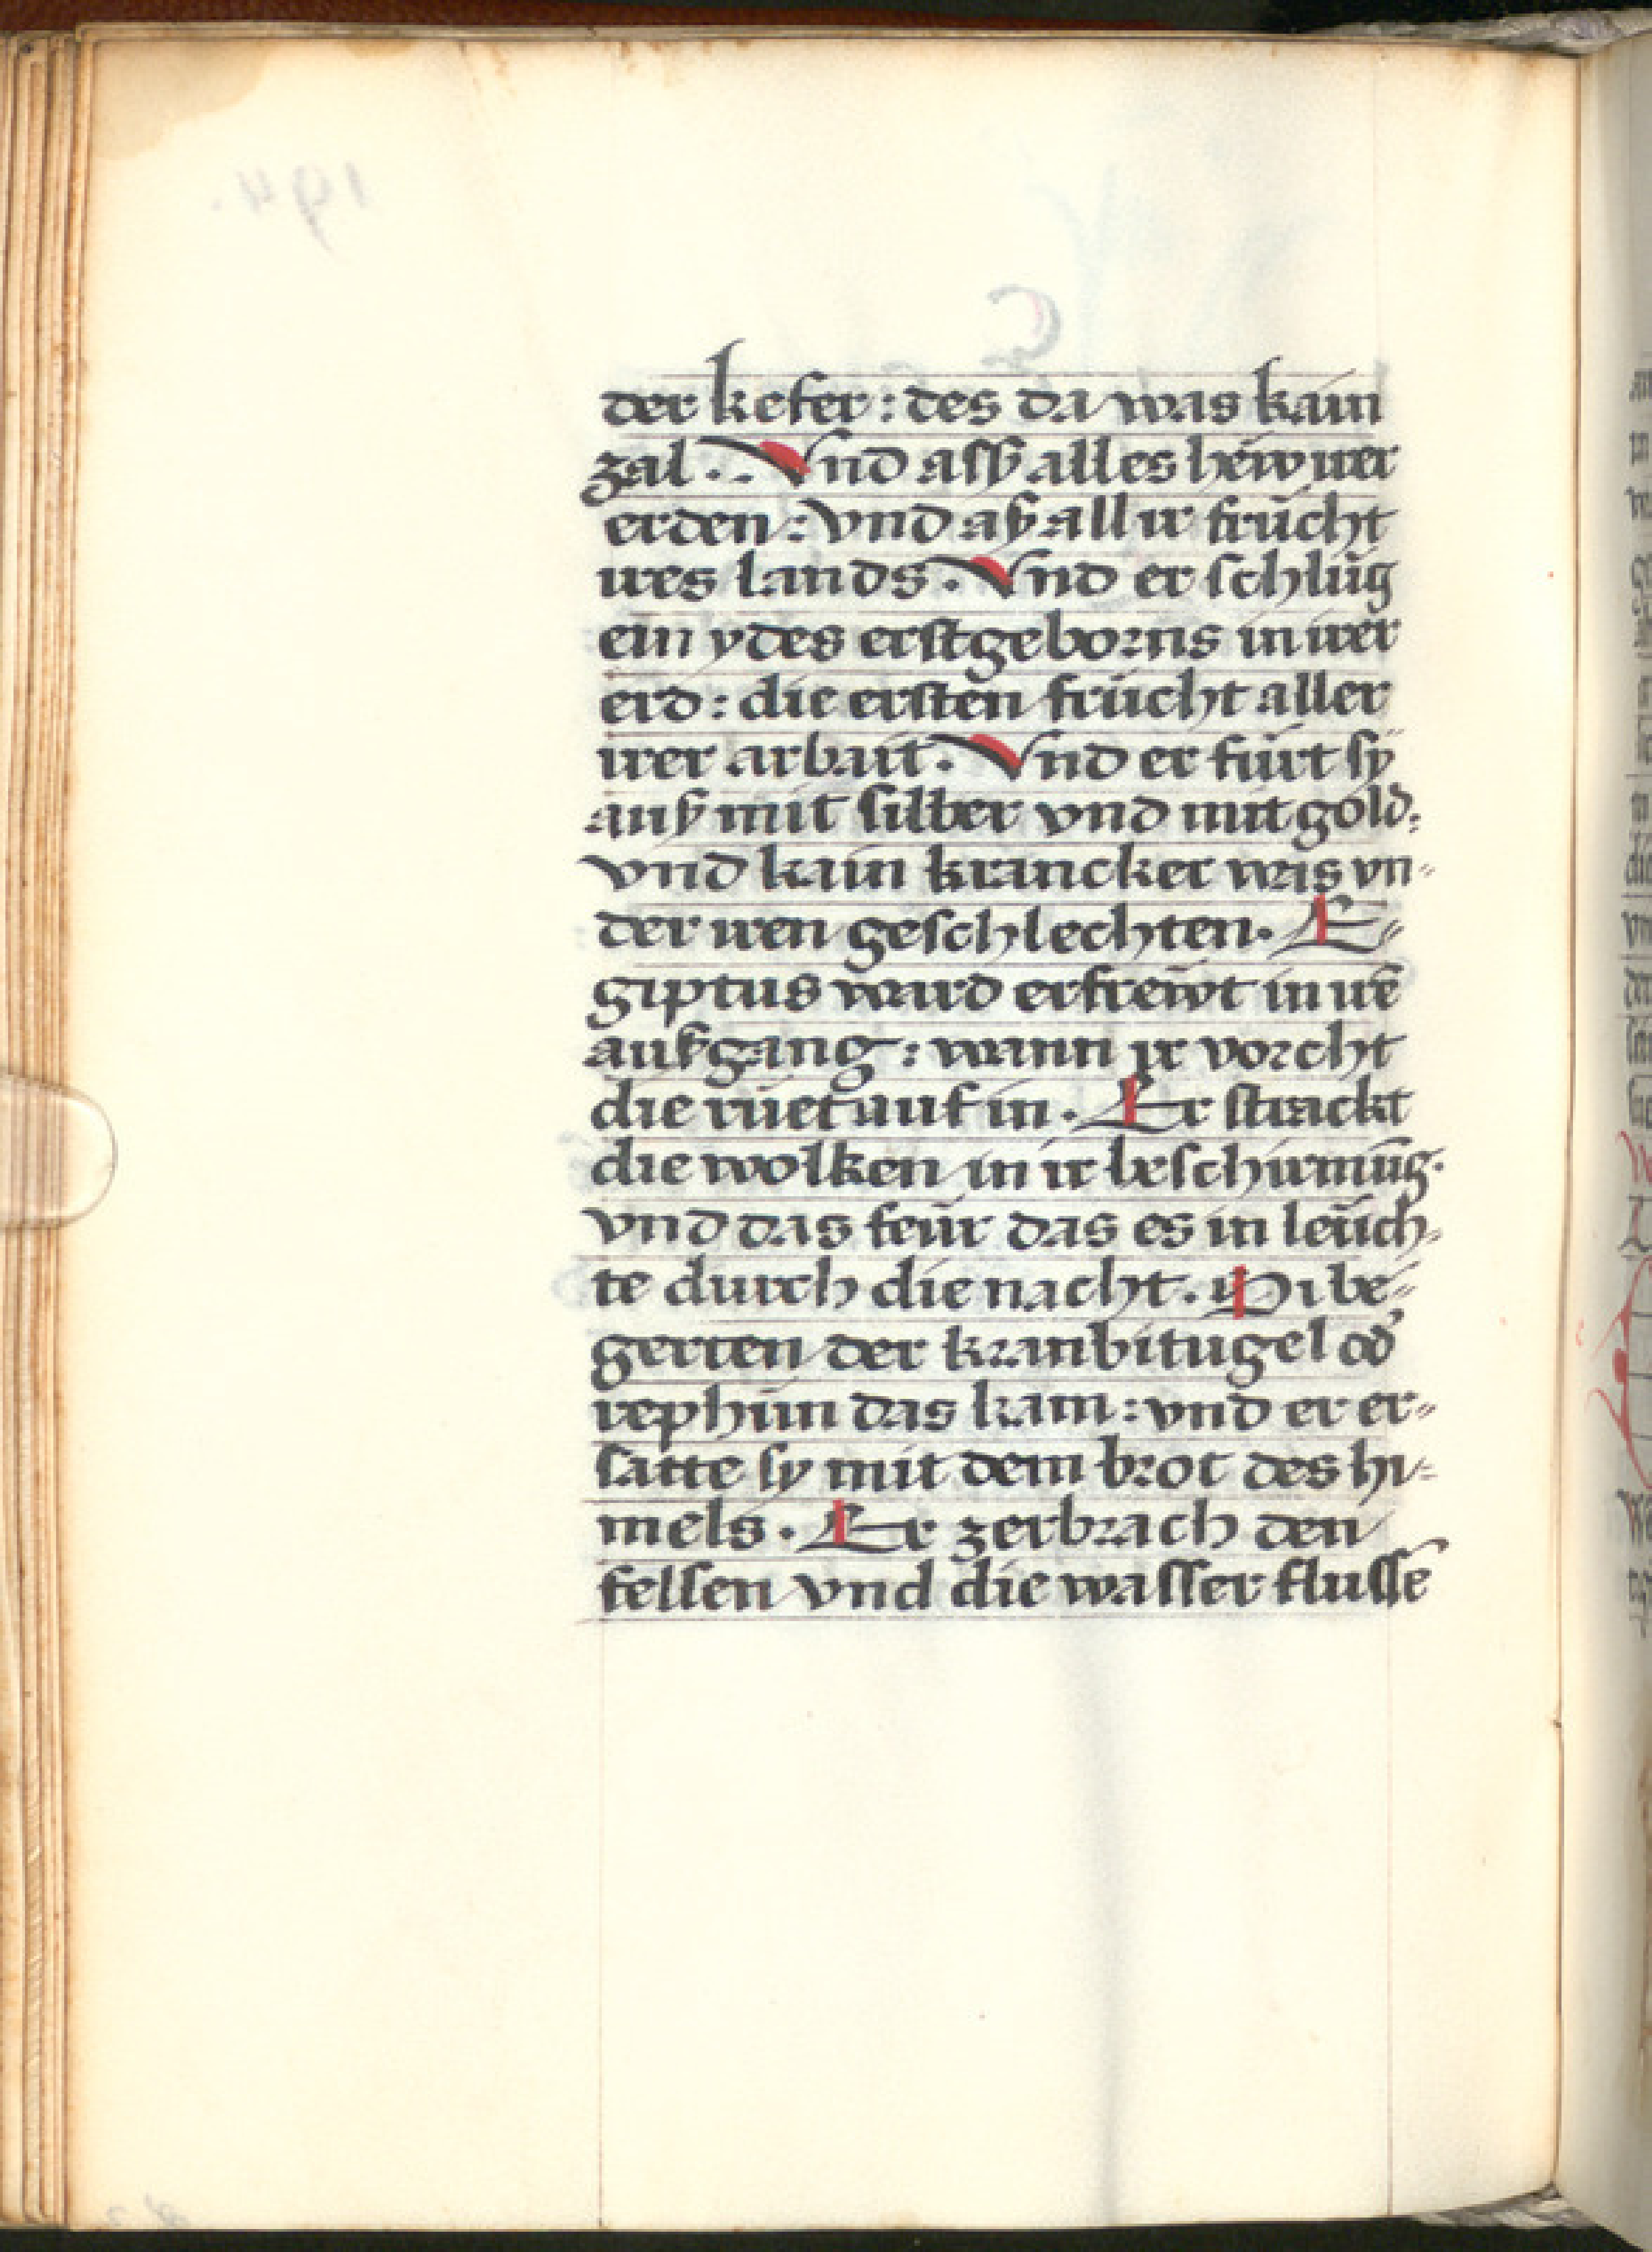 194.
der kefer : des da was kain
zal · Vnd assß alles hëw irer
erden : vnd aß all ir frücht
ires lands · Vnd er schlůg
ein ydes erstgeborns in irer
erd : die ersten frücht aller
irer arbait · Vnd er fürt sÿ
auß mit silber vnd mit gold :
vnd kain krancker was vn⸗
der iren geschlechten · E⸗
giptus ward erfrewt in irē
aufgang : wann ir vorcht
die rüet auf in · Er strackt
die wolken in ir beschirmūg ·
vnd das feür das es in leüch⸗
te durch die nacht · Si be⸗
gerten der kranbitugel od'
rephün das kam : vnd er er⸗
satte sy mit dem brot des hi⸗
mels · Er zerbrach den
felsen vnd die wasser flussē